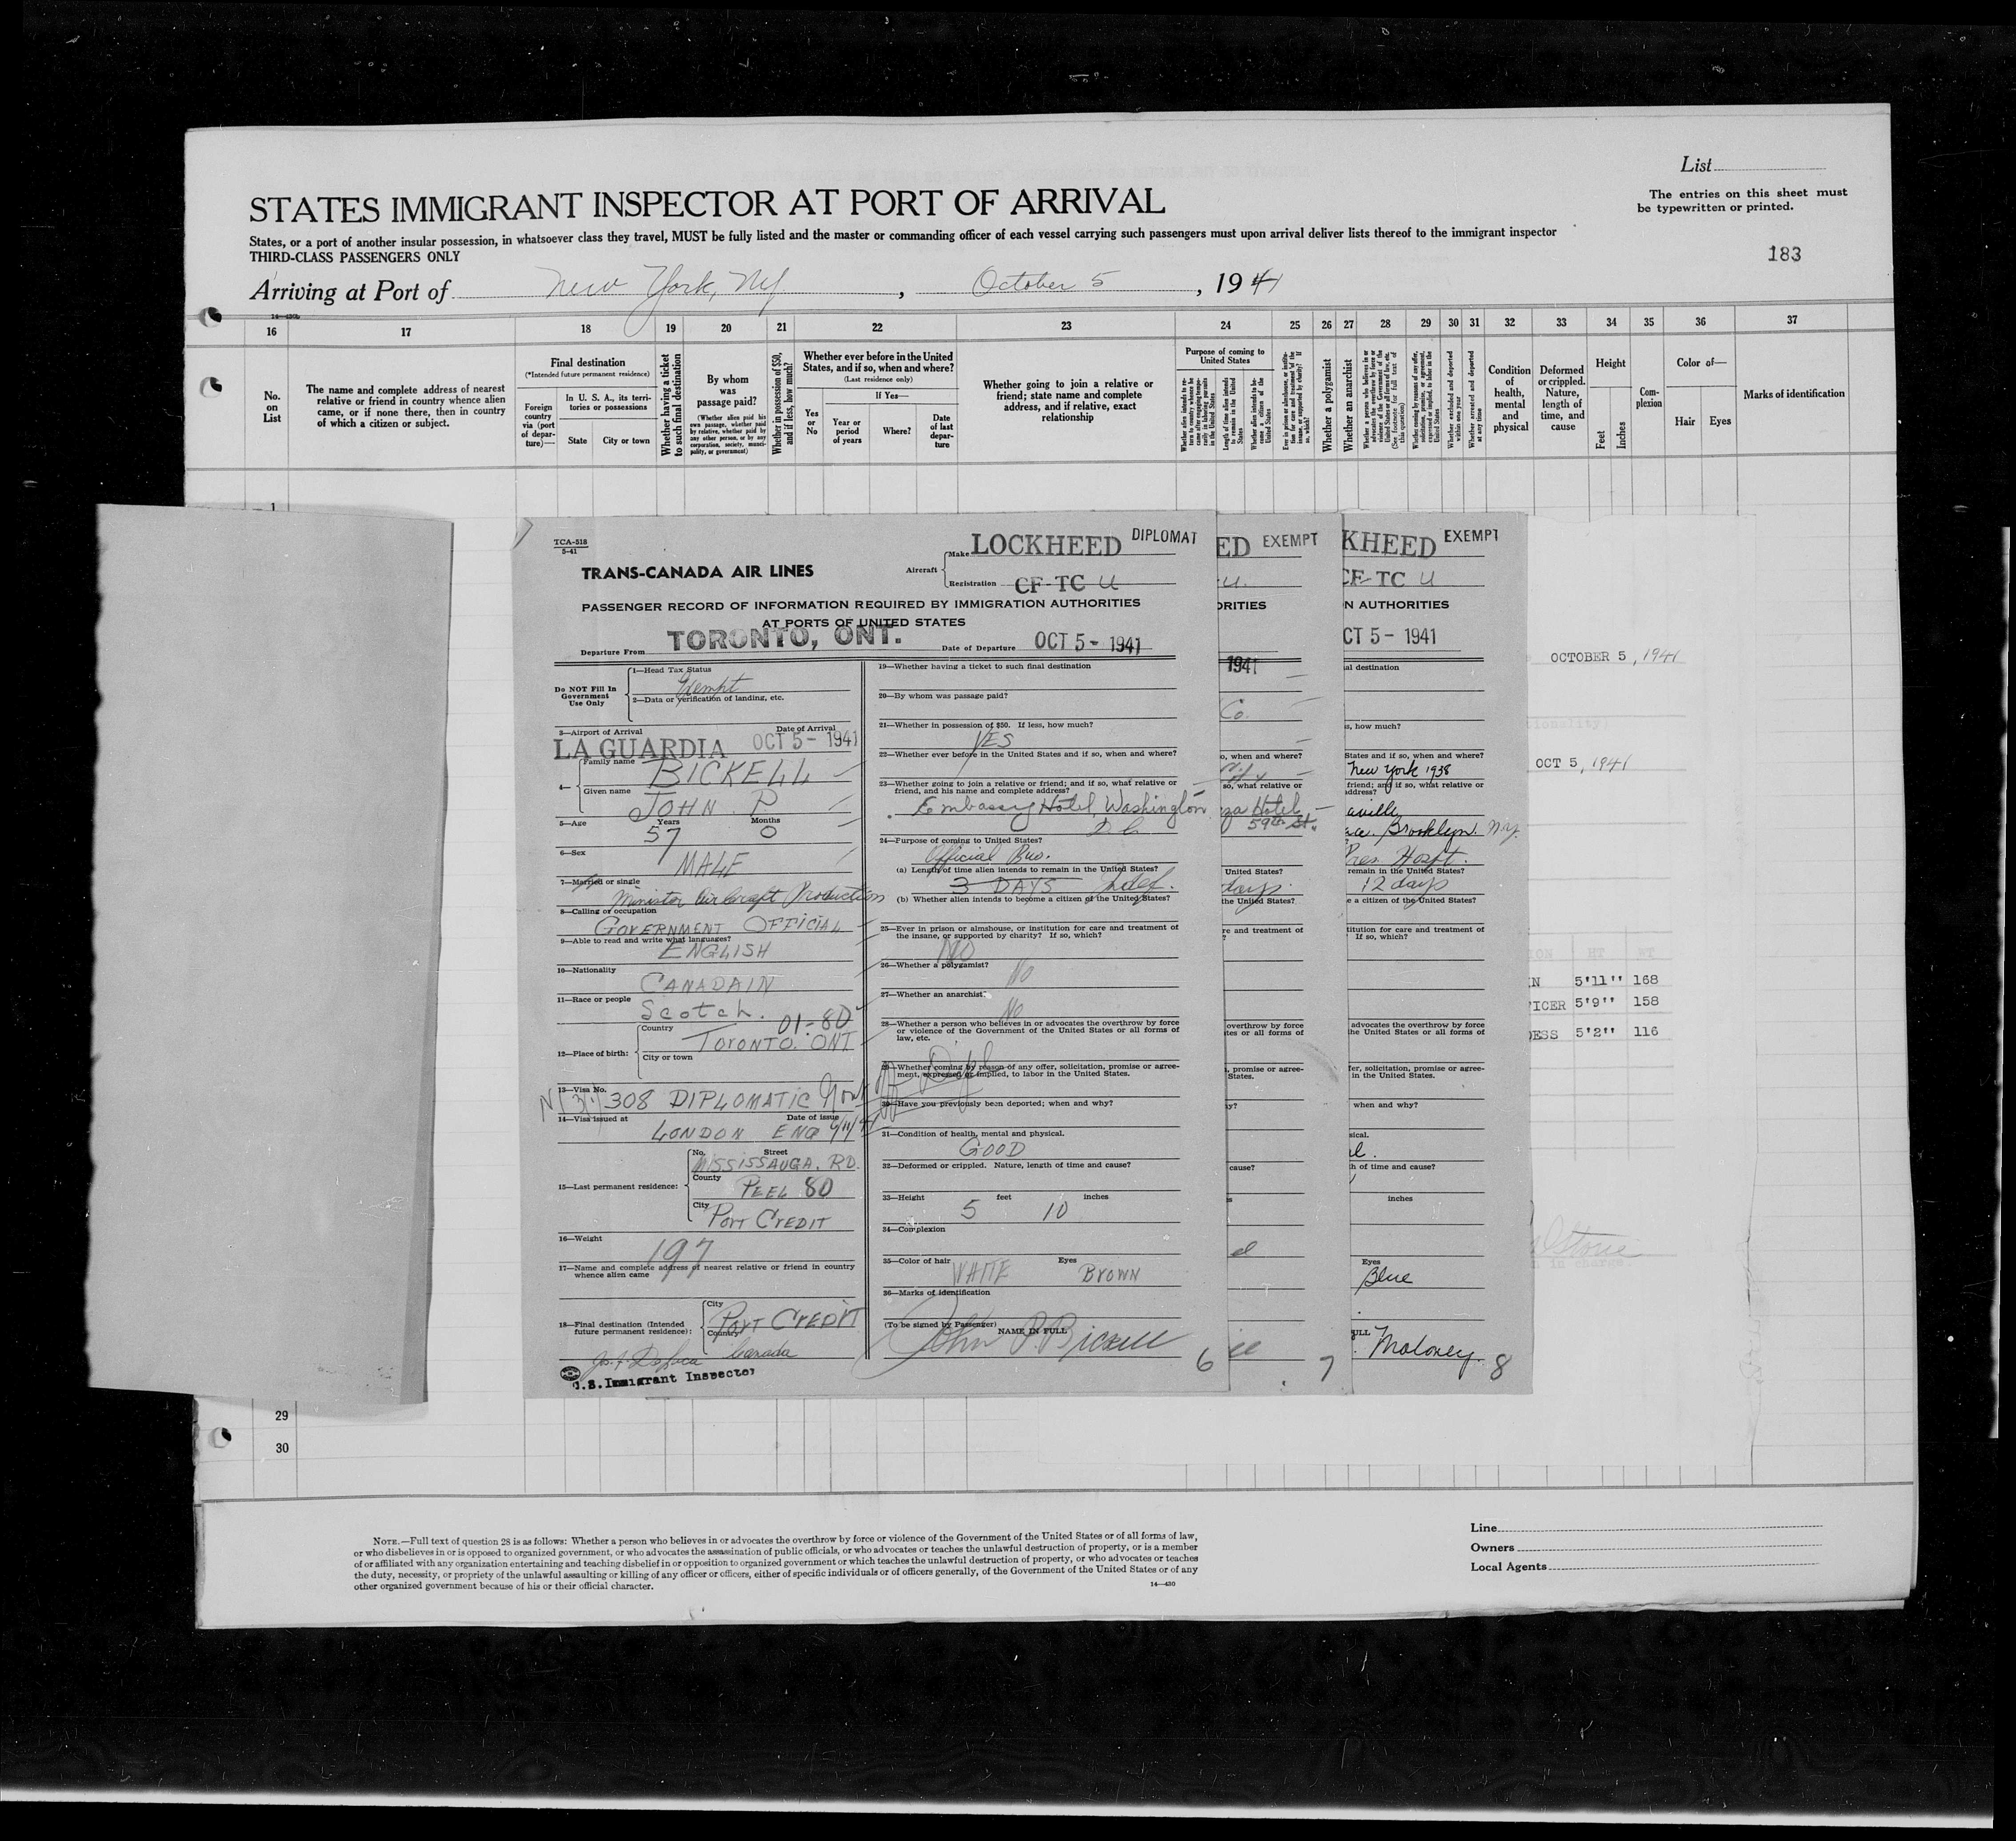 List
The entries on this sheet must
be typewritten or printed.
183
STATES IMMIGRANT INSPECTOR AT PORT OF ARRIVAL
States, or a port of another insular possession, in whatsoever class they travel, MUST be fully listed and the master or commanding officer of each vessel carrying such passengers must upon arrival deliver lists thereof to the immigrant inspector
THIRD-CLASS PASSENGERS ONLY
Arriving at Port of New York, NY, October 5, 1941
16 17 18 19 20 21 22 23 24 25 26 27 28 29 30 31 32 33 34 35 36 37
No.
on
List
The name and complete address of nearest
relative or friend in country whence alien
came, or if none there, then in country
of which a citizen or subject.
Final destination
(*Intended future permanent residence)
Foreign
country
via (port
of depar-
ture)—
In U. S. A., its terri-
tories or possessions
State
City or town
Whether having a ticket
to such final destination
By whom
was
passage paid?
(Whether alien paid his
own passage, whether paid
by relative, whether paid by
any other person, or by any
corporation, society, munici-
pality, or government)
Whether in possession of $50,
and if less, how much?
Whether ever before in the United
States, and if so, when and where?
(Last residence only)
Yes
or
No
If Yes—
Year or
period
of years
Where?
Date
of last
depar-
ture
Whether going to join a relative or
friend; state name and complete
address, and if relative, exact
relationship
Purpose of coming to
United States
Whether a polygamist
Whether an anarchist
Condition
of
health,
mental
and
physical
Deformed
or crippled.
Nature,
length of
time, and
cause
Height
Feet
Inches
Com-
plexion
Color of—
Hair
Eyes
Marks of identification
1
TCA-518
5-41
TRANS-CANADA AIR LINES
Aircraft
Make LOCKHEED DIPLOMAT
Registration CF-TC U
PASSENGER RECORD OF INFORMATION REQUIRED BY IMMIGRATION AUTHORITIES
AT PORTS OF UNITED STATES
Departure From TORONTO, ONT.
Date of Departure OCT 5 - 1941
Do NOT Fill In
Government
Use Only
1—Head Tax Status
Exempt
2—Data or verification of landing, etc.
3—Airport of Arrival
Date of Arrival
LA GUARDIA OCT 5 - 1941
4—
Family name BICKELL
Given name JOHN. P
5—Age
Years 57
Months 0
6—Sex
MALE
7—Married or single
Minister Aircraft Production
8—Calling or occupation
GOVERNMENT OFFICIAL
9—Able to read and write what languages?
ENGLISH
10—Nationality
CANADAIN
11—Race or people
Scotch. 01-80
12—Place of birth:
Country
TORONTO. ONT
City or town
13—Visa No.
308 DIPLOMATIC
14—Visa issued at
Date of issue
LONDON ENG
15—Last permanent residence:
No. Street
MISSISSAUGA. RD.
County
PEEL 80
City
PORT CREDIT
16—Weight
197
17—Name and complete address of nearest relative or friend in country
whence alien came
18—Final destination (Intended
future permanent residence):
City
PORT CREDIT
Country
Canada
U.S. Immigrant Inspector
19—Whether having a ticket to such final destination
20—By whom was passage paid?
21—Whether in possession of $50. If less, how much?
YES
22—Whether ever before in the United States and if so, when and where?
23—Whether going to join a relative or friend; and if so, what relative or
friend, and his name and complete address?
Embassy Hotel, Washington
D.C.
24—Purpose of coming to United States?
Official Bus.
(a) Length of time alien intends to remain in the United States?
3 DAYS Indef.
(b) Whether alien intends to become a citizen of the United States?
25—Ever in prison or almshouse, or institution for care and treatment of
the insane, or supported by charity? If so, which?
NO
26—Whether a polygamist?
No
27—Whether an anarchist
No
28—Whether a person who believes in or advocates the overthrow by force
or violence of the Government of the United States or all forms of
law, etc.
29—Whether coming by reason of any offer, solicitation, promise or agree-
ment, expressed or implied, to labor in the United States.
30—Have you previously been deported; when and why?
31—Condition of health, mental and physical.
GOOD
32—Deformed or crippled. Nature, length of time and cause?
33—Height 5 feet 10 inches
34—Complexion
35—Color of hair WHITE Eyes BROWN
36—Marks of identification
(To be signed by Passenger)
NAME IN FULL
John P. Bickell
6
ED EXEMPT
U.
ORITIES
1941
Co.
o, when and where?
so, what relative or
za Hotel
59th St.
United States?
days.
the United States?
re and treatment of
?
overthrow by force
tes or all forms of
, promise or agree-
States.
y?
cause?
s
7
KHEED EXEMPT
CF-TC U
N AUTHORITIES
CT 5 - 1941
al destination
s, how much?
States and if so, when and where?
New York 1938
friend; and if so, what relative or
ddress?
aville,
ace. Brooklyn. N.Y.
Pres. Hospt.
remain in the United States?
12 days
e a citizen of the United States?
titution for care and treatment of
If so, which?
advocates the overthrow by force
the United States or all forms of
fer, solicitation, promise or agree-
in the United States.
when and why?
sical.
h of time and cause?
inches
Eyes
Blue
ULL
Maloney.
8
OCTOBER 5, 1941
OCT 5, 1941
ION HT WT
N 5'11" 168
ICER 5'9" 158
ESS 5'2" 116
29
30
NOTE.—Full text of question 28 is as follows: Whether a person who believes in or advocates the overthrow by force or violence of the Government of the United States or of all forms of law,
or who disbelieves in or is opposed to organized government, or who advocates the assassination of public officials, or who advocates or teaches the unlawful destruction of property, or is a member
of or affiliated with any organization entertaining and teaching disbelief in or opposition to organized government or which teaches the unlawful destruction of property, or who advocates or teaches
the duty, necessity, or propriety of the unlawful assaulting or killing of any officer or officers, either of specific individuals or of officers generally, of the Government of the United States or of any
other organized government because of his or their official character.
14—430
Line
Owners
Local Agents